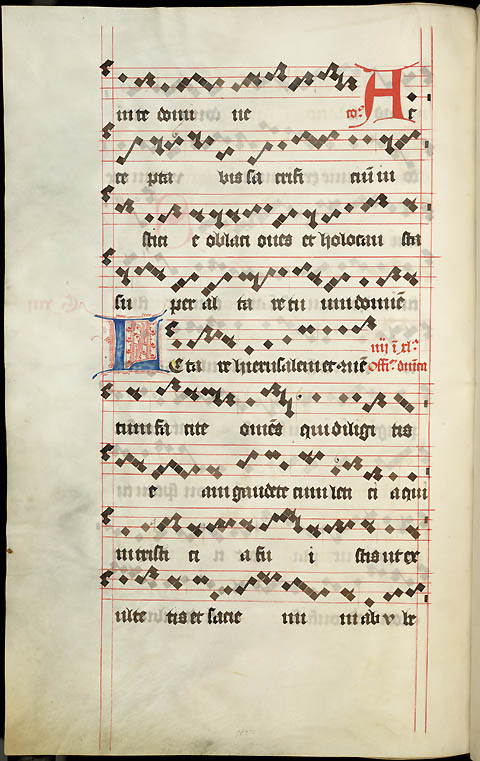 in te domi ne co. A c
ce pta bis sa crifi ciū iu
stici e oblati ones et holocau sta
su per al ta re tu um domīe
iiij ī xl.
LE ta re hierusalem et ꝯuē Offī. dnīca
tum fa cite omēs qui diligi tis
e am gaudete cum leti ci a qui
in tristi ci a fu i stis ut ex
ulte tis et sacie mi ni ab v be